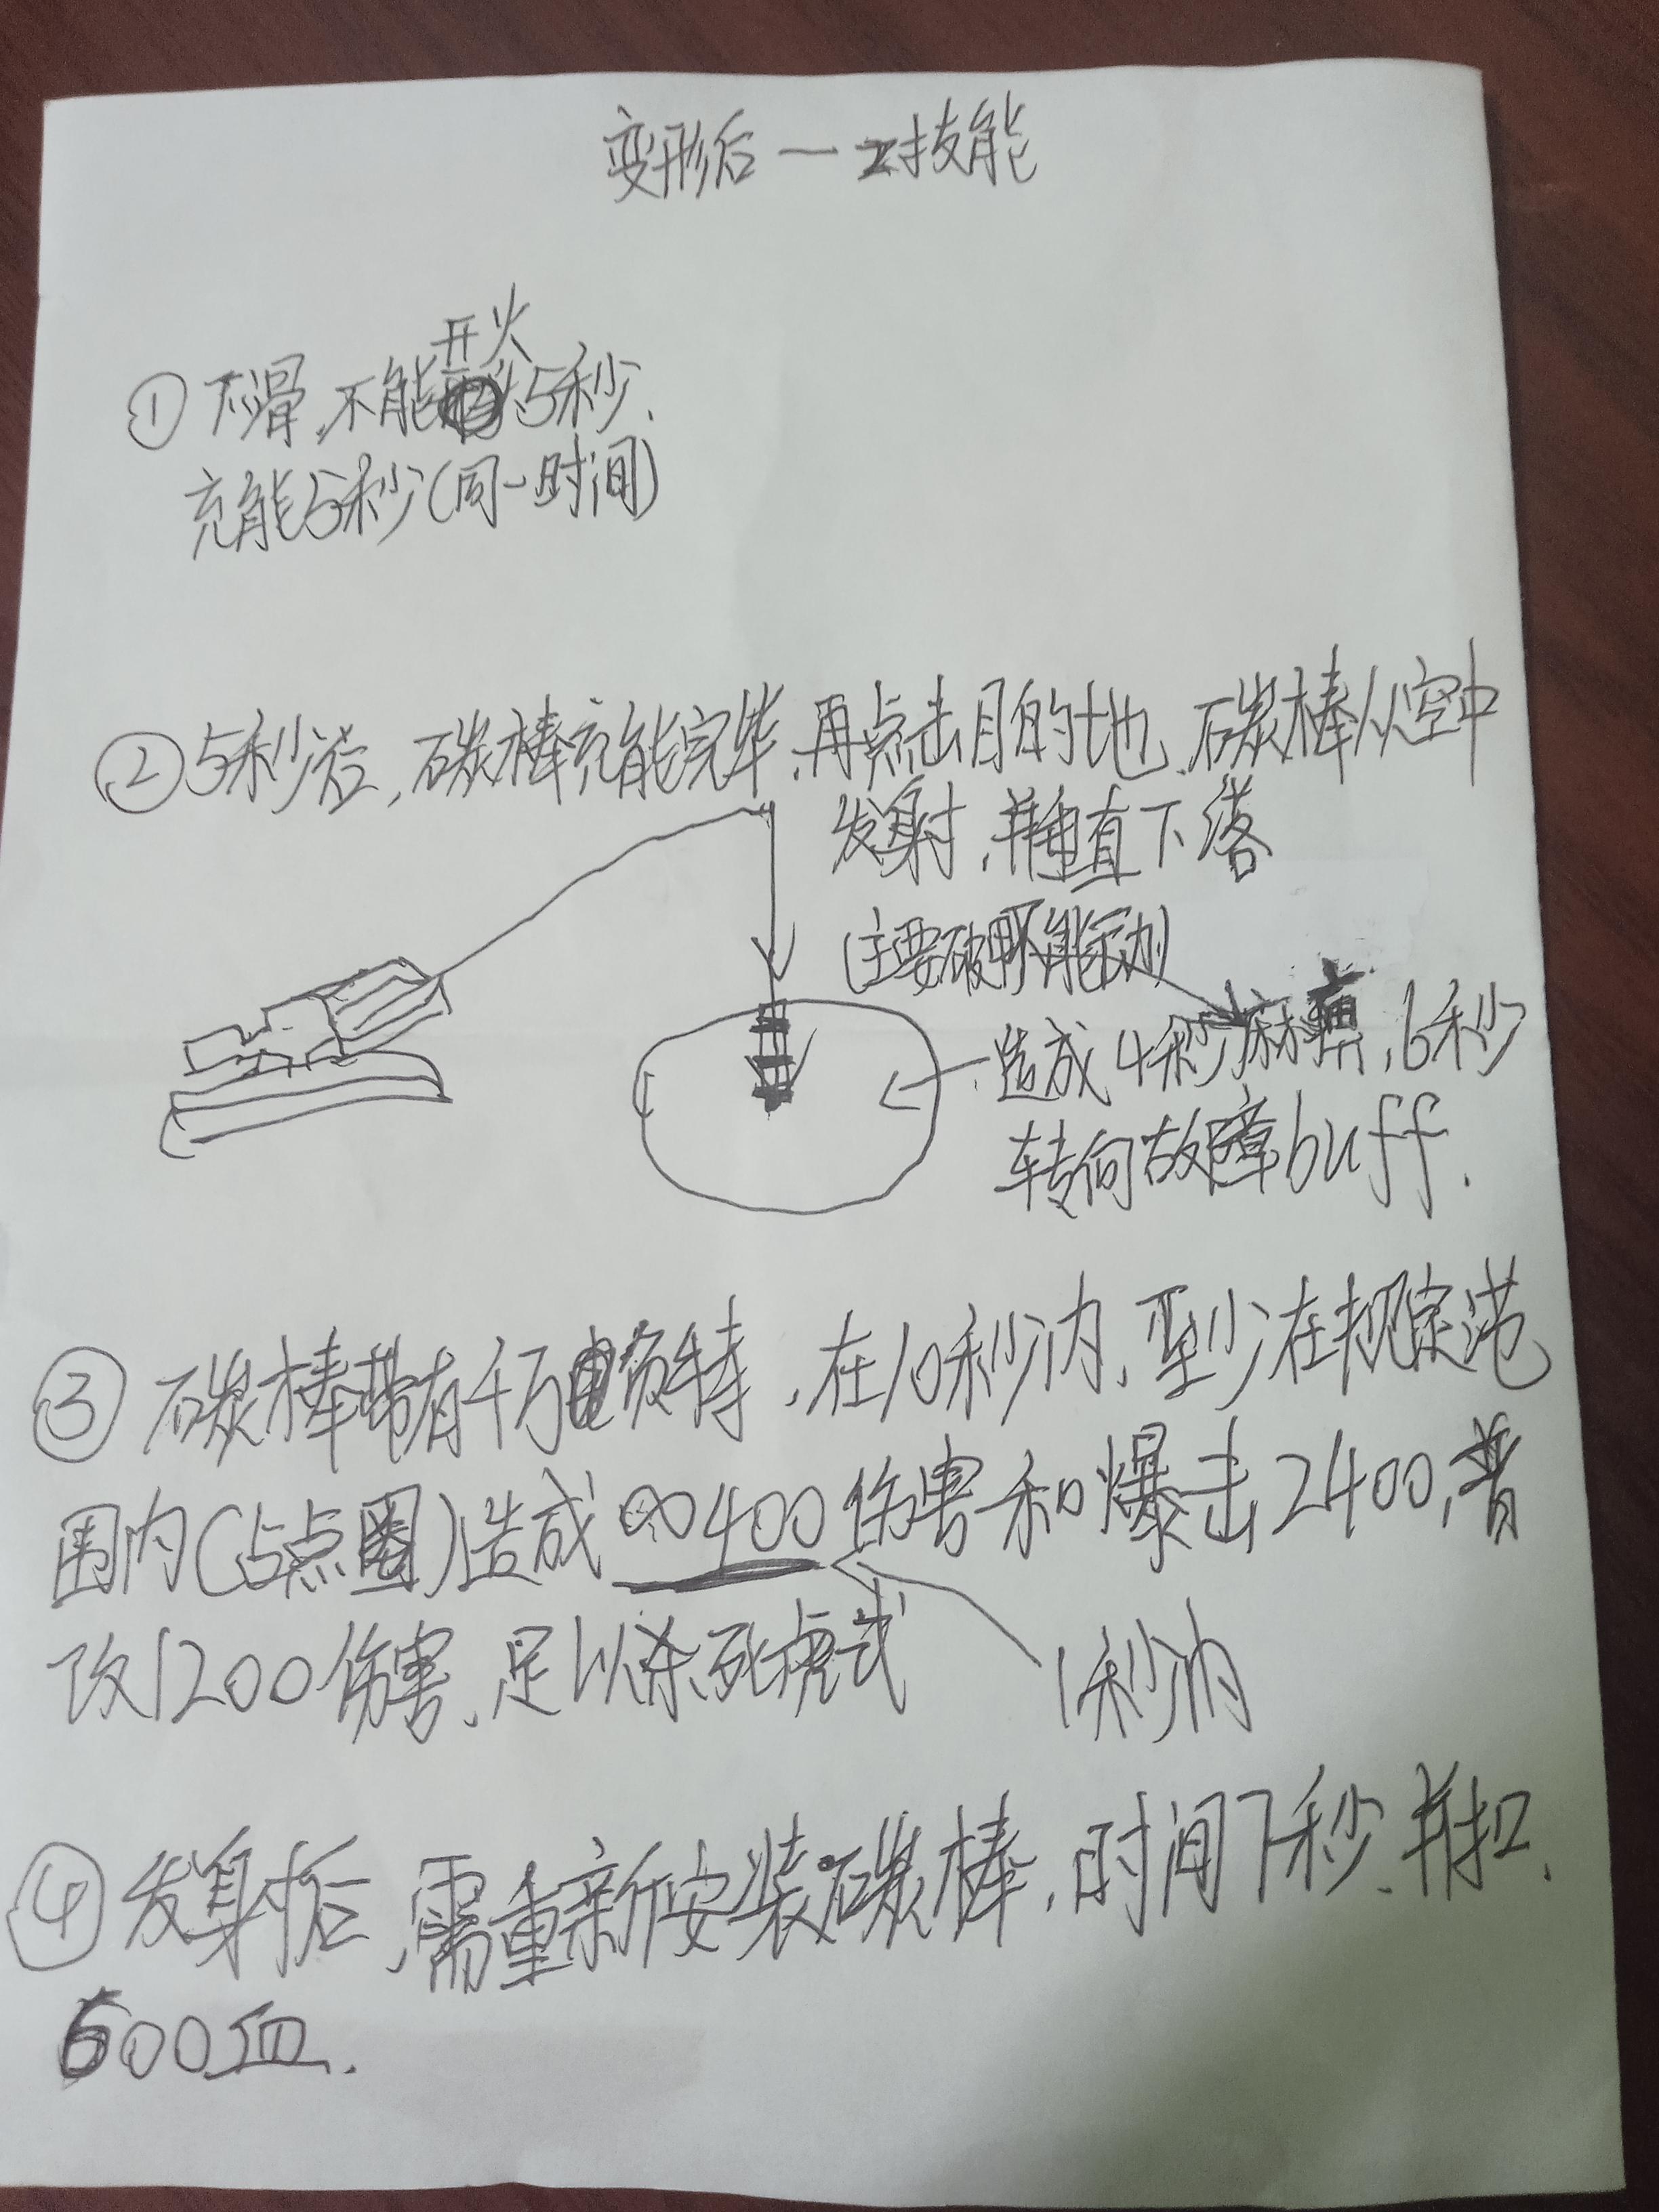 变形后一技能
开火
①下滑,不能5秒.
充能5秒(同一时间)
②5秒后,碳棒充能完毕,再点击目的地,碳棒从空中
发射,并垂直下落
(主要破坏不能动)
造成4秒麻痹,6秒
转向故障buff.
③碳棒带有千万伏特,在10秒内,至少在规定范
围内(5点圈)造成400伤害和爆击2400,普
攻1200伤害,足以杀死虎式
1秒内
④发射后,需重新安装碳棒,时间7秒.并扣.
600血.